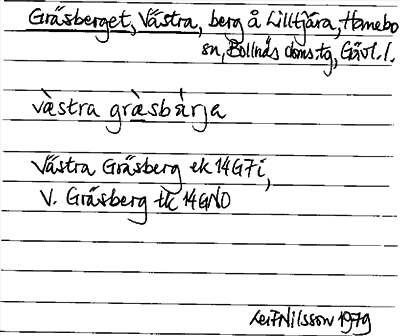 Gräsberget, Västra, berg å Lilltjära, Hanebo
sn, Bollnäs doms.tg, Gävl. l.
vàstra gràsbárja
Västra Gräsberg ek 14G7i,
V. Gräsberg tk 14GNO
Leif Nilsson 1979